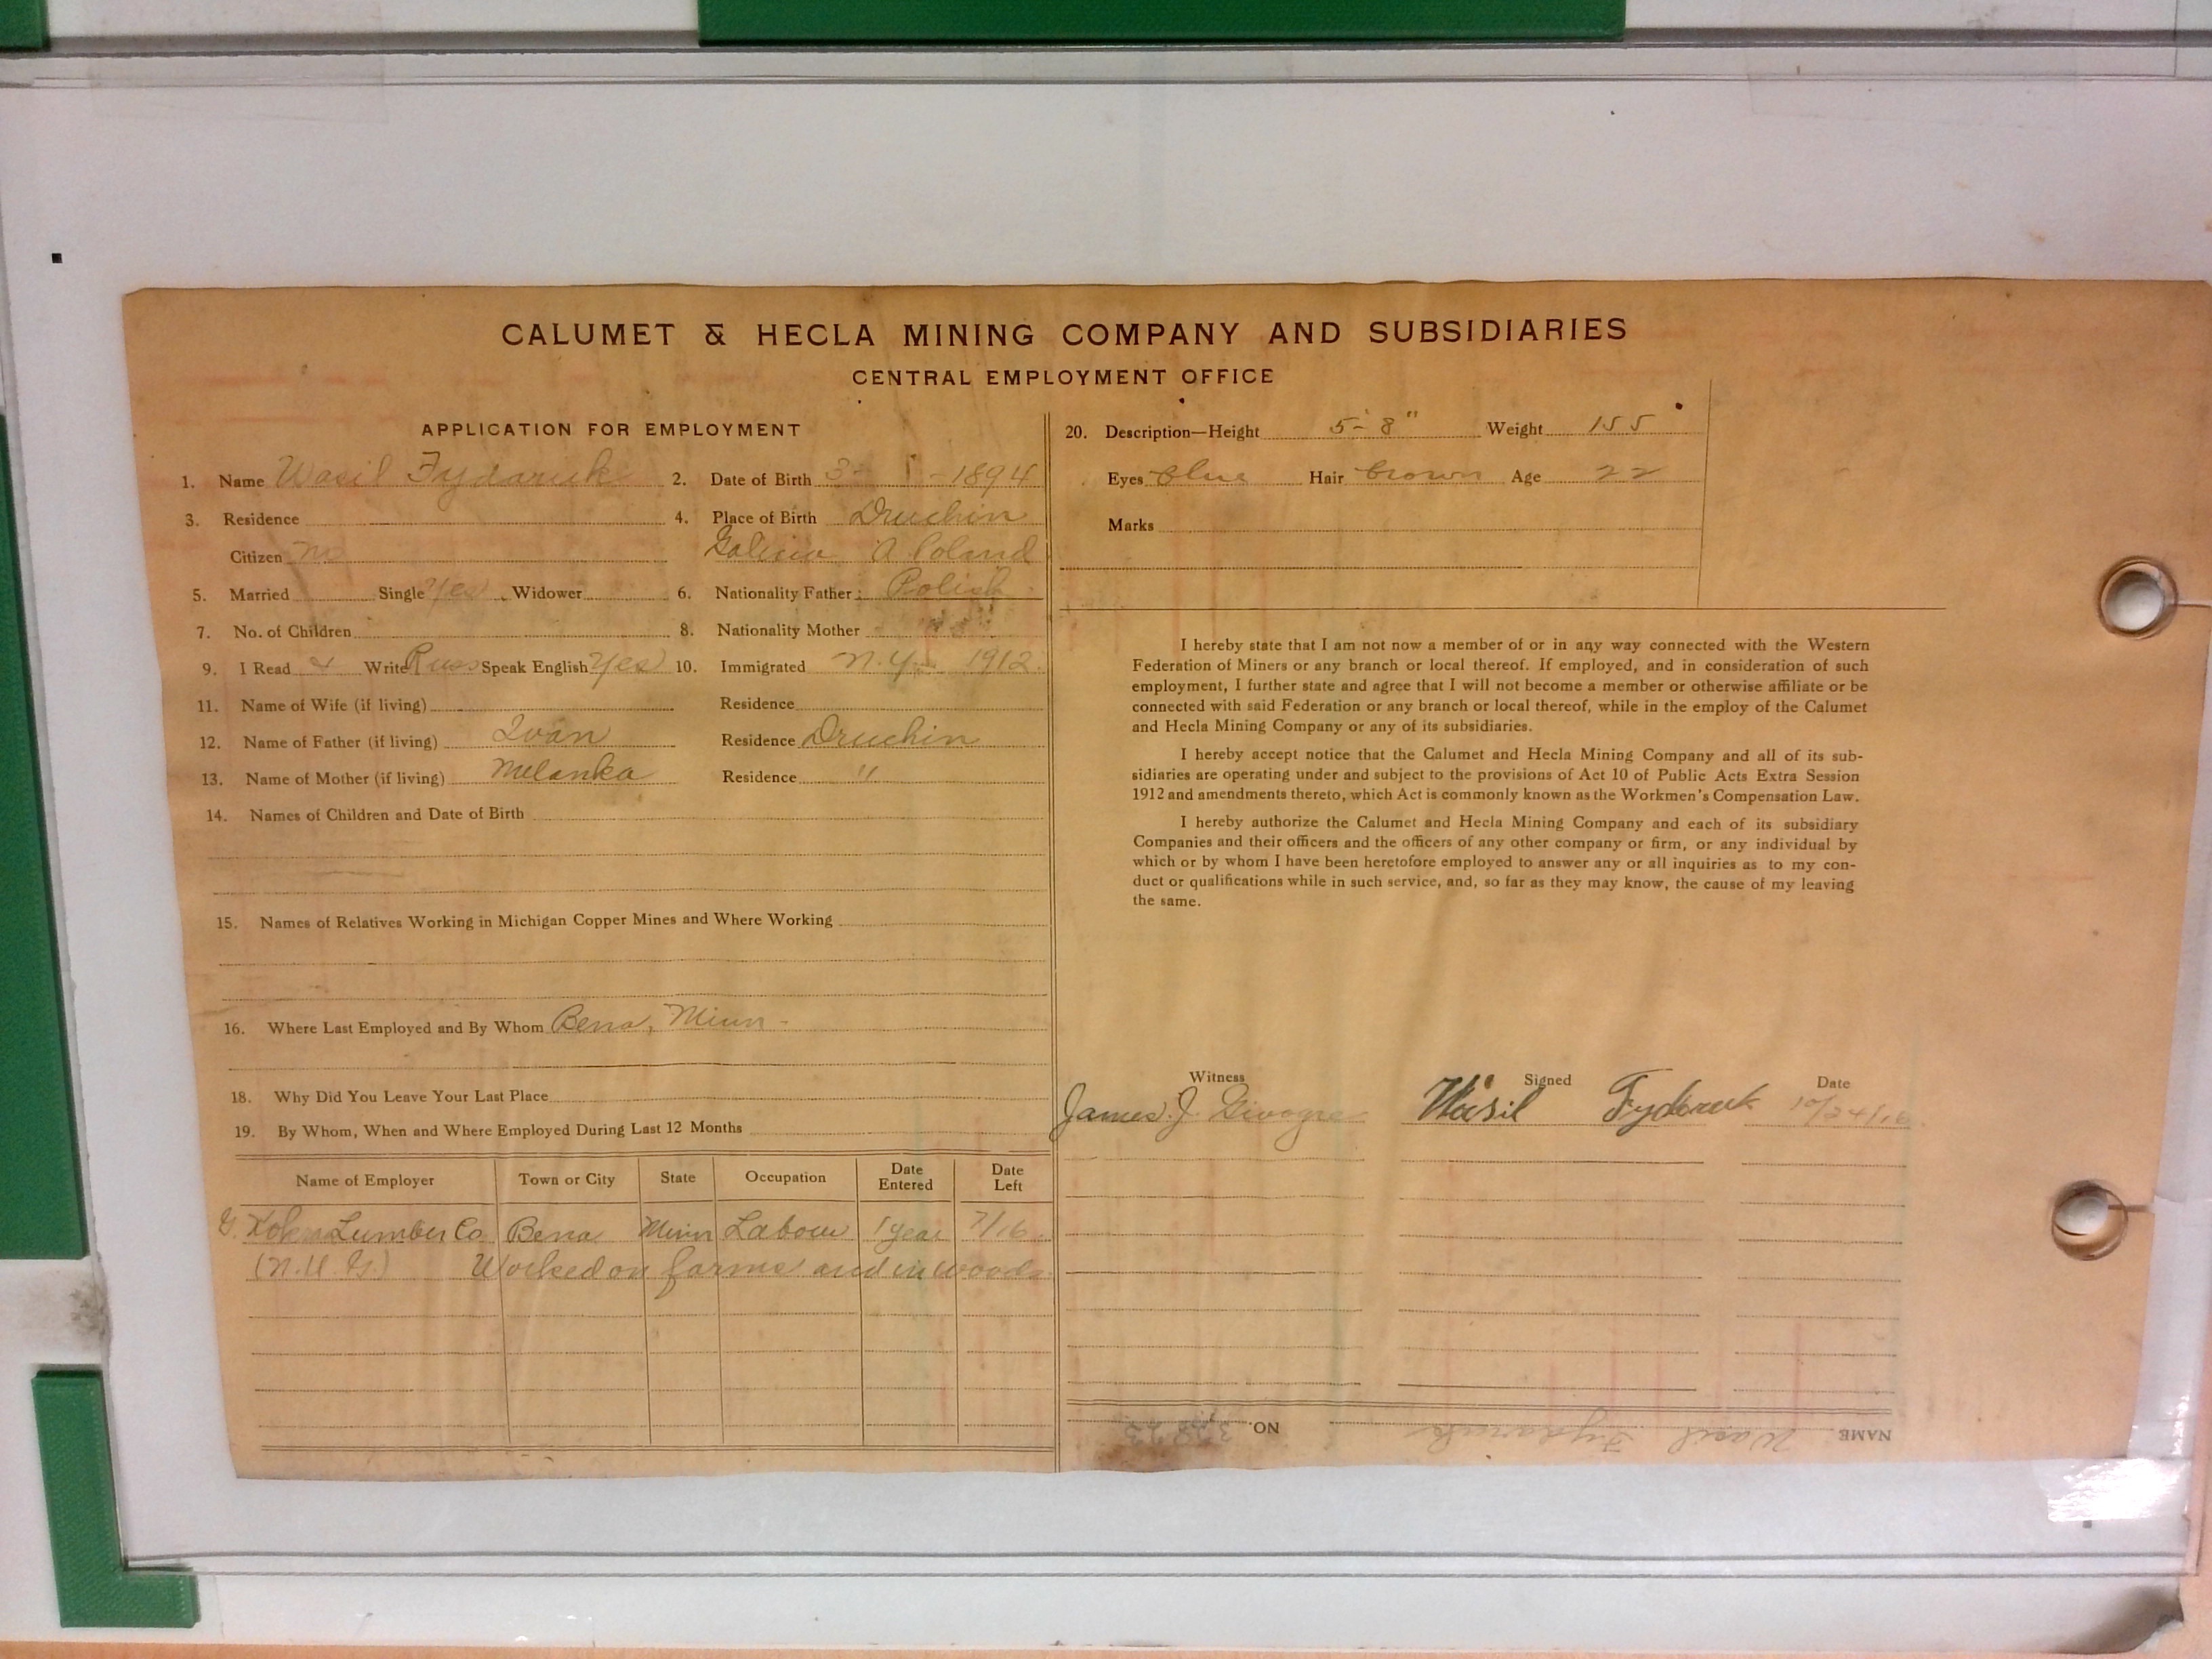 CALUMET & HECLA MINING COMPANY AND SUBSIDIARIES
CENTRAL EMPLOYMENT OFFICE
APPLICATION FOR EMPLOYMENT
1. Name Wasil Fydaruk 2. Date of Birth 3- 1 - 1894
3. Residence 4. Place of Birth Druchin
Citizen no Galicia A. Poland
5. Married Single Yes Widower 6. Nationality Father: Polish
7. No. of Children 8. Nationality Mother
9. I Read & Write Russ Speak English Yes 10. Immigrated N.Y. - 1912
11. Name of Wife (if living) Residence
12. Name of Father (if living) Ivan Residence Druchin
13. Name of Mother (if living) Melanka Residence "
14. Names of Children and Date of Birth
15. Names of Relatives Working in Michigan Copper Mines and Where Working
16. Where Last Employed and By Whom Bena, Minn -
18. Why Did You Leave Your Last Place
19. By Whom, When and Where Employed During Last 12 Months
Name of Employer Town or City State Occupation Date Entered Date Left
Lumber Co Bena Minn Labour 1 year 7/16
Worked on farms and in woods
20. Description—Height 5-8" Weight 155
Eyes blue Hair brown Age 22
Marks
I hereby state that I am not now a member of or in any way connected with the Western
Federation of Miners or any branch or local thereof. If employed, and in consideration of such
employment, I further state and agree that I will not become a member or otherwise affiliate or be
connected with said Federation or any branch or local thereof, while in the employ of the Calumet
and Hecla Mining Company or any of its subsidiaries.
I hereby accept notice that the Calumet and Hecla Mining Company and all of its sub-
sidiaries are operating under and subject to the provisions of Act 10 of Public Acts Extra Session
1912 and amendments thereto, which Act is commonly known as the Workmen's Compensation Law.
I hereby authorize the Calumet and Hecla Mining Company and each of its subsidiary
Companies and their officers and the officers of any other company or firm, or any individual by
which or by whom I have been heretofore employed to answer any or all inquiries as to my con-
duct or qualifications while in such service, and, so far as they may know, the cause of my leaving
the same.
Witness Signed Date
James J. Wasil Fyderuk 10/24/16
NAME Wasil Fydaruk NO.